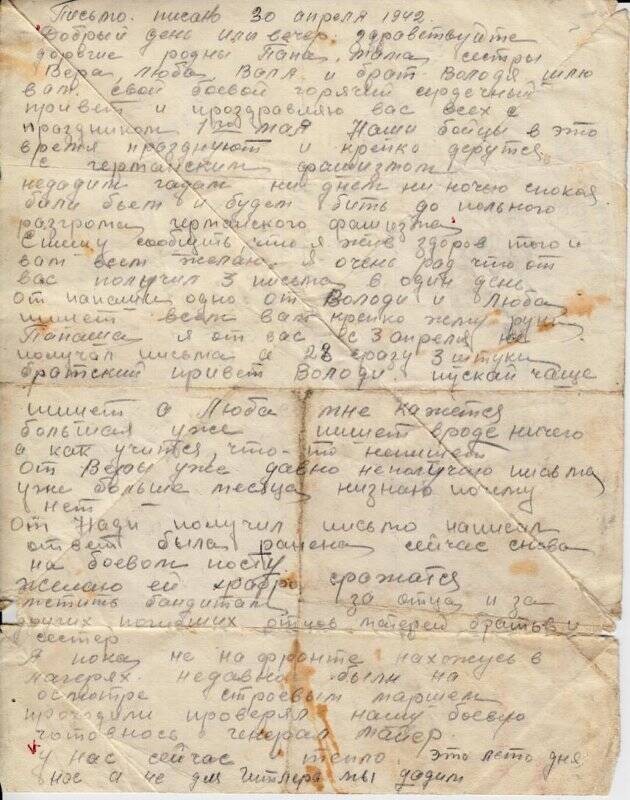 Письмо. писаю 30 апреля 1942.
Добрый день или вечер здравствуйте
дорогие родны Папа, Мама сестры
Вера, Люба, Валя и брат Володя шлю
вам свой боевой горячий сердечный
привет и проздравляю вас всех с
праздником 1го мая Наши бойцы в это
время празднуют и крепко дерутся
с германским фашизмом
недадим гадам ни днем ни ночею спокоя
били бьем и будем бить до польного
разгрома германского фашизма
Спешу сообщить что я жив здоров того и
вам всем желаю. я очень рад что от
вас получил 3 письма в один день
от папаши одно от Володи и Люба
пишет всем вам крепко жму руки
Папаша я от вас с 3 апреля не
получал письма а 28 сразу 3 штуки
братский привет Володи. пускай чаще
пишет а Люба мне кажется
большая уже пишет вроде ничего
а как учится, что-то непишет
от Веры уже давно неполучаю письма
уже больше месяца низнаю почему
нет
от Нади получил письмо написал
ответ была ранена сейчас снова
на боевом посту
желаю ей храбро сражатся
мстить бандитам за отца и за
других погибших отцов матерей братьев и
сестер
Я пока не на фронте нахожусь в
лагерях. недавно были на
осмотре строевым маршем
проходили проверял нашу боевую
готовнось генерал майер.
у нас сейчас тепло. это лето для
нас а не для Гитлера мы дадим